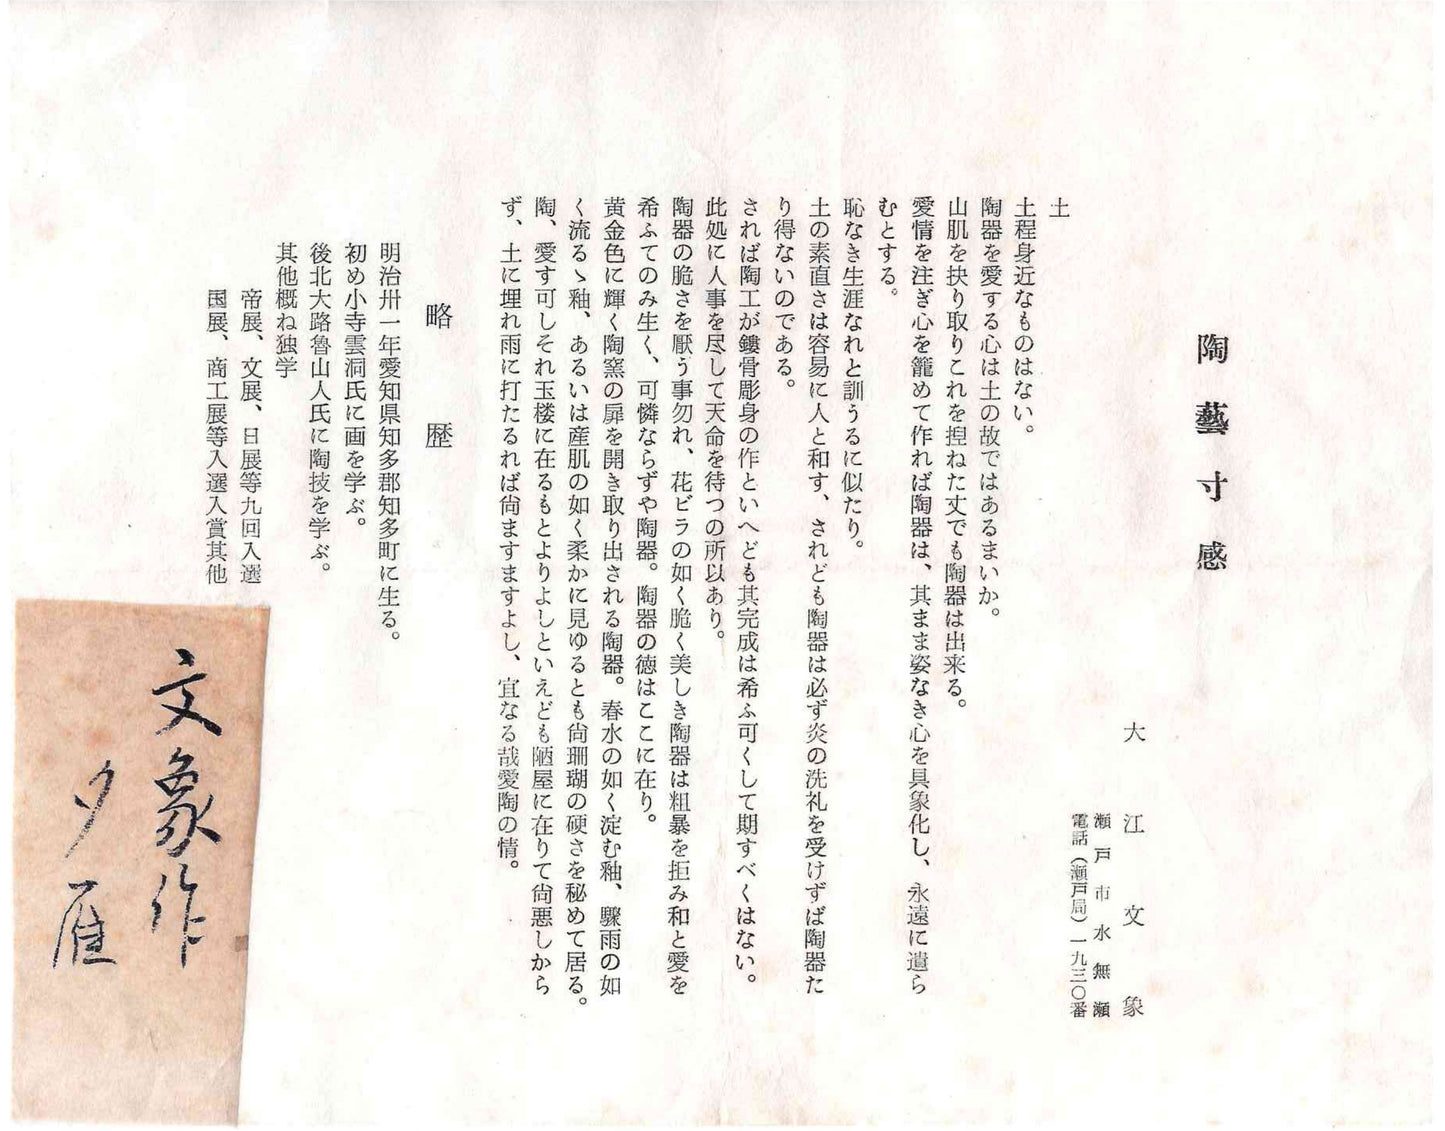 陶藝寸感
大江文象
瀬戸市水無瀬
電話（瀬戸局）一九三〇番
土
土程身近なものはない。
陶器を愛する心は土の故ではあるまいか。
山肌を抉り取りこれを捏ねた丈でも陶器は出来る。
愛情を注ぎ心を籠めて作れば陶器は、其まま姿なき心を具象化し、永遠に遺ら
むとする。
恥なき生涯なれと訓うるに似たり。
土の素直さは容易に人と和す、されども陶器は必ず炎の洗礼を受けずば陶器た
り得ないのである。
されば陶工が鏤骨彫身の作といへども其完成は希ふ可くして期すべくはない。
此処に人事を尽して天命を待つの所以あり。
陶器の脆さを厭う事勿れ、花ビラの如く脆く美しき陶器は粗暴を拒み和と愛を
希ふてのみ生く、可憐ならずや陶器。陶器の徳はここに在り。
黄金色に輝く陶窯の扉を開き取り出される陶器。春水の如く淀む釉、驟雨の如
く流るゝ釉、あるいは産肌の如く柔かに見ゆるとも尙珊瑚の硬さを秘めて居る。
陶、愛す可しそれ玉楼に在るもとよりよしといえども陋屋に在りて尙悪しから
ず、土に埋れ雨に打たるれば尙ますますよし、宜なる哉愛陶の情。
略歴
明治卅一年愛知県知多郡知多町に生る。
初め小寺雲洞氏に画を学ぶ。
後北大路魯山人氏に陶技を学ぶ。
其他概ね独学
帝展、文展、日展等九回入選
国展、商工展等入選入賞其他
文象作
夕雁